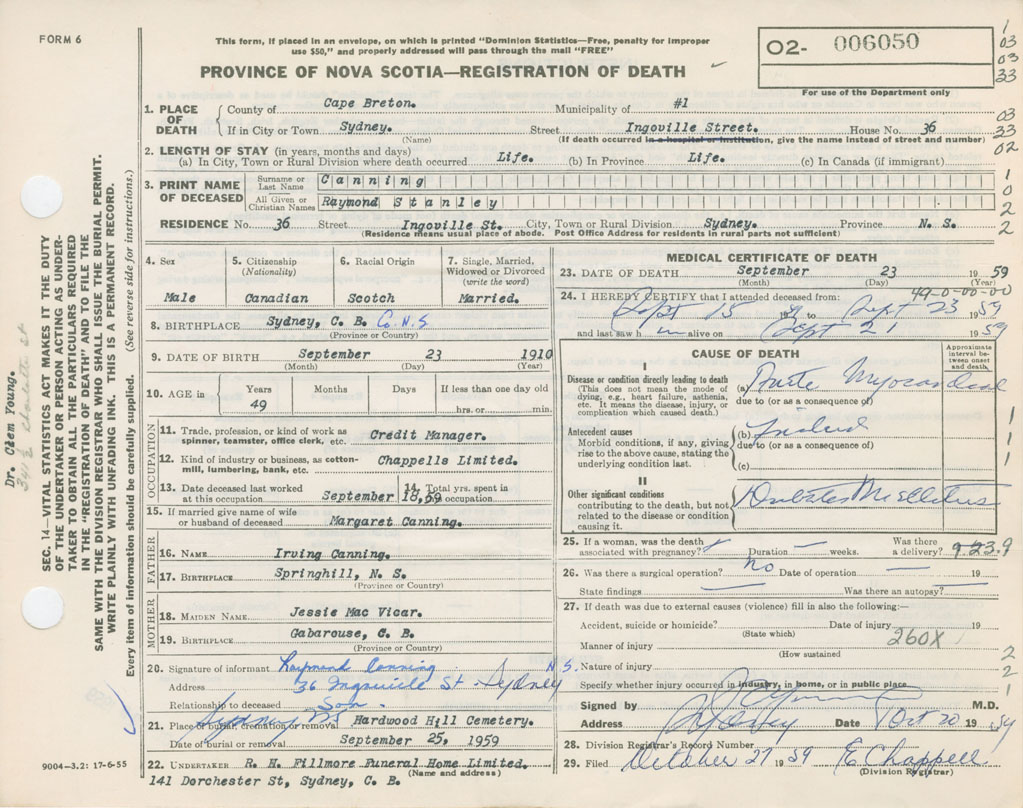 FORM 6
This form, if placed in an envelope, on which is printed "Dominion Statistics—Free, penalty for improper
use $50," and properly addressed will pass through the mail "FREE"
PROVINCE OF NOVA SCOTIA—REGISTRATION OF DEATH
O2- 006050
For use of the Department only
1
03
03
33
03
33
02
1
0
2
2
1. PLACE OF DEATH
County of Cape Breton. Municipality of #1
If in City or Town Sydney. Street Ingoville Street. House No. 36
(Name) (If death occurred in a hospital or institution, give the name instead of street and number)
2. LENGTH OF STAY (in years, months and days)
(a) In City, Town or Rural Division where death occurred Life. (b) In Province Life. (c) In Canada (if immigrant)
3. PRINT NAME OF DECEASED
Surname or Last Name Canning
All Given or Christian Names Raymond Stanley
RESIDENCE No. 36 Street Ingoville St. City, Town or Rural Division Sydney. Province N. S.
(Residence means usual place of abode. Post Office Address for residents in rural parts not sufficient)
4. Sex Male
5. Citizenship (Nationality) Canadian
6. Racial Origin Scotch
7. Single, Married, Widowed or Divorced (write the word) Married.
8. BIRTHPLACE Sydney, C. B. Co. N.S.
(Province or Country)
9. DATE OF BIRTH September 23 1910
(Month) (Day) (Year)
10. AGE in Years 49 Months Days If less than one day old hrs. or min.
OCCUPATION
11. Trade, profession, or kind of work as spinner, teamster, office clerk, etc. Credit Manager.
12. Kind of industry or business, as cotton-mill, lumbering, bank, etc. Chappells Limited.
13. Date deceased last worked at this occupation September 18,59
14. Total yrs. spent in occupation
15. If married give name of wife or husband of deceased Margaret Canning.
FATHER
16. NAME Irving Canning.
17. BIRTHPLACE Springhill, N. S.
(Province or Country)
MOTHER
18. MAIDEN NAME Jessie Mac Vicar.
19. BIRTHPLACE Gabarouse, C. B.
(Province or Country)
20. Signature of informant Raymond Canning
Address 36 Ingoville St Sydney N.S.
Relationship to deceased Son.
21. Place of burial, cremation or removal Hardwood Hill Cemetery.
Date of burial or removal September 25, 1959
22. UNDERTAKER R. H. Fillmore Funeral Home Limited.
(Name and address)
141 Dorchester St, Sydney, C. B.
9004-3.2: 17-6-55
MEDICAL CERTIFICATE OF DEATH
23. DATE OF DEATH September 23 1959
(Month) (Day) (Year)
49-0-00-00
24. I HEREBY CERTIFY that I attended deceased from:
Sept 15 to Sept 23 1959
and last saw him alive on Sept 21 1959
CAUSE OF DEATH
Approximate interval between onset and death.
I
Disease or condition directly leading to death
(This does not mean the mode of dying, e.g., heart failure, asthenia, etc. It means the disease, injury, or complication which caused death.)
(a) Acute Myocardial
due to (or as a consequence of)
Antecedent causes
Morbid conditions, if any, giving rise to the above cause, stating the underlying condition last.
(b)
due to (or as a consequence of)
(c)
1
1
1
II
Other significant conditions
contributing to the death, but not related to the disease or condition causing it.
Diabetes Mellitus
25. If a woman, was the death associated with pregnancy? Duration — weeks. Was there a delivery?
26. Was there a surgical operation? No Date of operation — 19
State findings — Was there an autopsy? —
27. If death was due to external causes (violence) fill in also the following:—
Accident, suicide or homicide? Date of injury 19
(State which)
Manner of injury 260X
(How sustained)
Nature of injury
Specify whether injury occurred in industry, in home, or in public place
2
2
1
Signed by M.D.
Address Sydney Date Oct 20 1959
28. Division Registrar's Record Number
29. Filed October 27 1959 E Chappell
(Division Registrar)
SEC. 14—VITAL STATISTICS ACT MAKES IT THE DUTY
OF THE UNDERTAKER OR PERSON ACTING AS UNDER-
TAKER TO OBTAIN ALL THE PARTICULARS REQUIRED
IN THE "REGISTRATION OF DEATH" AND TO FILE THE
SAME WITH THE DIVISION REGISTRAR WHO SHALL ISSUE THE BURIAL PERMIT.
WRITE PLAINLY WITH UNFADING INK. THIS IS A PERMANENT RECORD.
Every item of information should be carefully supplied. (See reverse side for instructions.)
Dr. Clem Young.